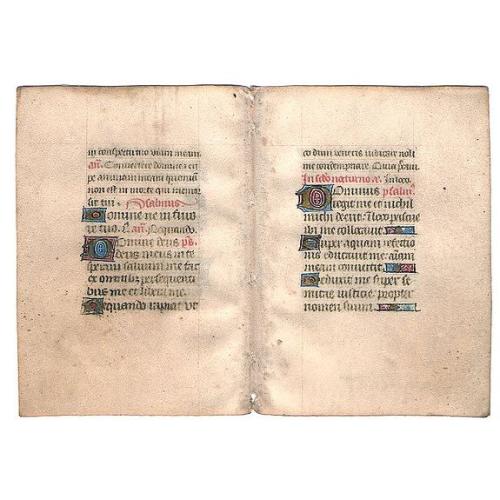 in conspectu tuo viam meam.
añ. Convertere domine et eri
pe animam meam quoniam
non est in morte qui memor
sit tui. Psalmus
Domine ne in furo
re tuo. añ. Nequando.
Domine deus ps.
deus meus in te
speravi salvum me fac
ex omnibus persequenti
bus me et libera me.
Nequando rapiat ut
me contempnare. Quia
In scđo nocturno añ. In loco.
Dominus psalm9
regit me et nichil
michi deerit in loco pascue
ibi me collocavit.
Super aquam refectio
nis educavit me animam
meam convertit.
Deduxit me super se
mitas iusticie propter
nomen suum.